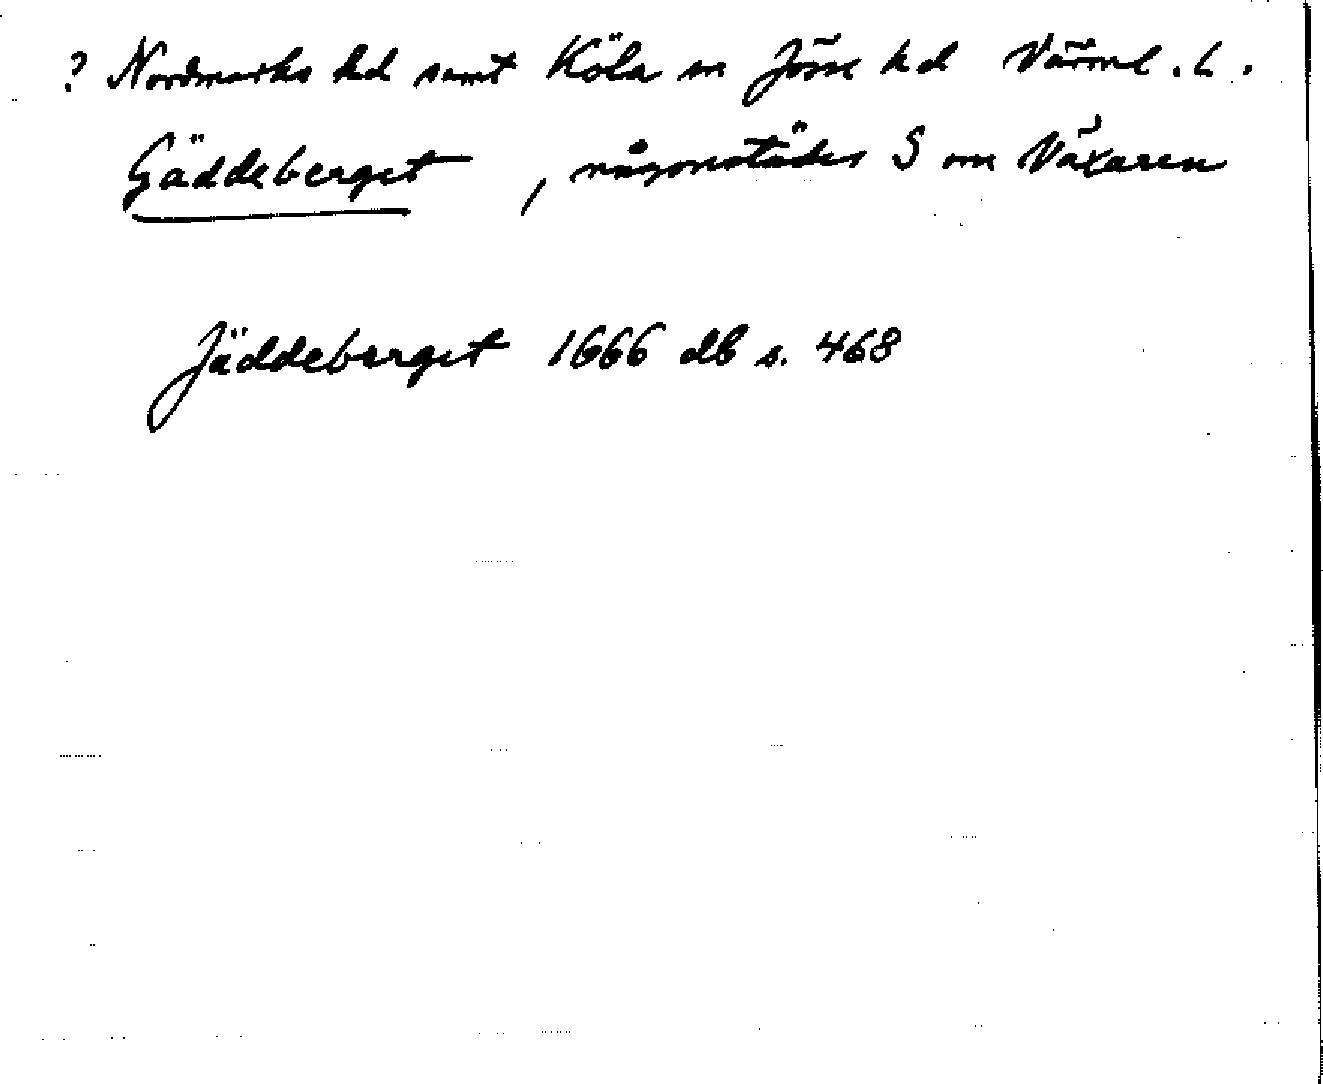 ? Nordmarks hd samt Köla sn Jösse hd Värml. l.
Gäddeberget, någonstädes S om Växaren
Jäddeberget 1666 db s. 468